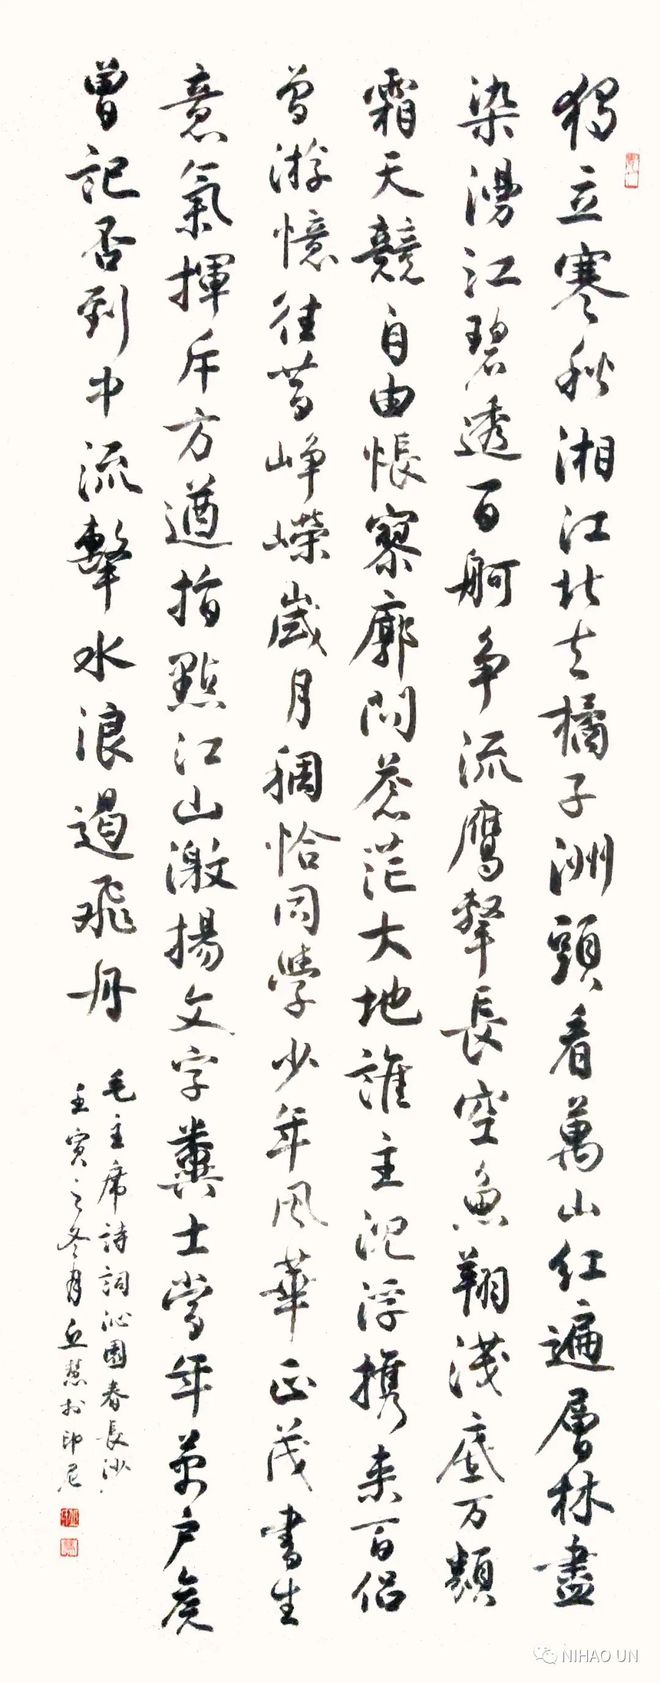 獨立寒秋湘江北去橘子洲頭看萬山红遍層林盡
染漫江碧透百舸争流鷹擊長空魚翔淺底万類
霜天競自由悵寥廓問蒼茫大地誰主沉浮携来百侣
曾游憶往昔峥嶸歲月稠恰同學少年風華正茂書生
意氣揮斥方遒指點江山激揚文字糞土當年萬户侯
曾記否到中流擊水浪遏飛舟
毛主席詩詞沁園春長沙
壬寅之冬月丘慧於印尼
NIHAO UN